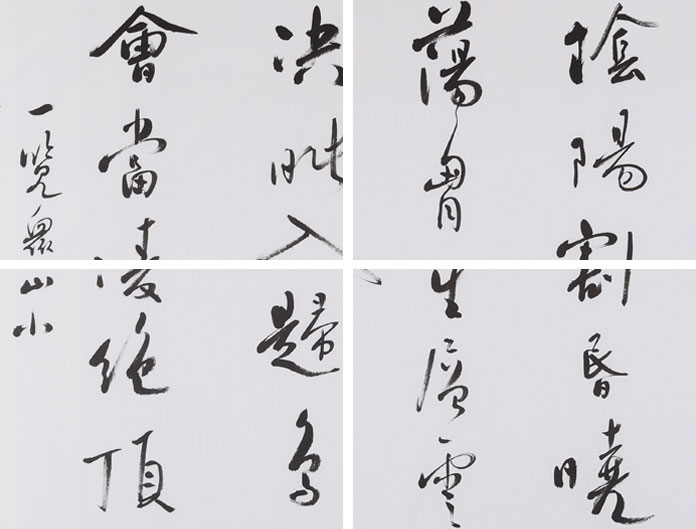 陰陽割昬曉
蕩胷生層雲
决眦入歸鳥
會當凌絶頂
一覽衆山小